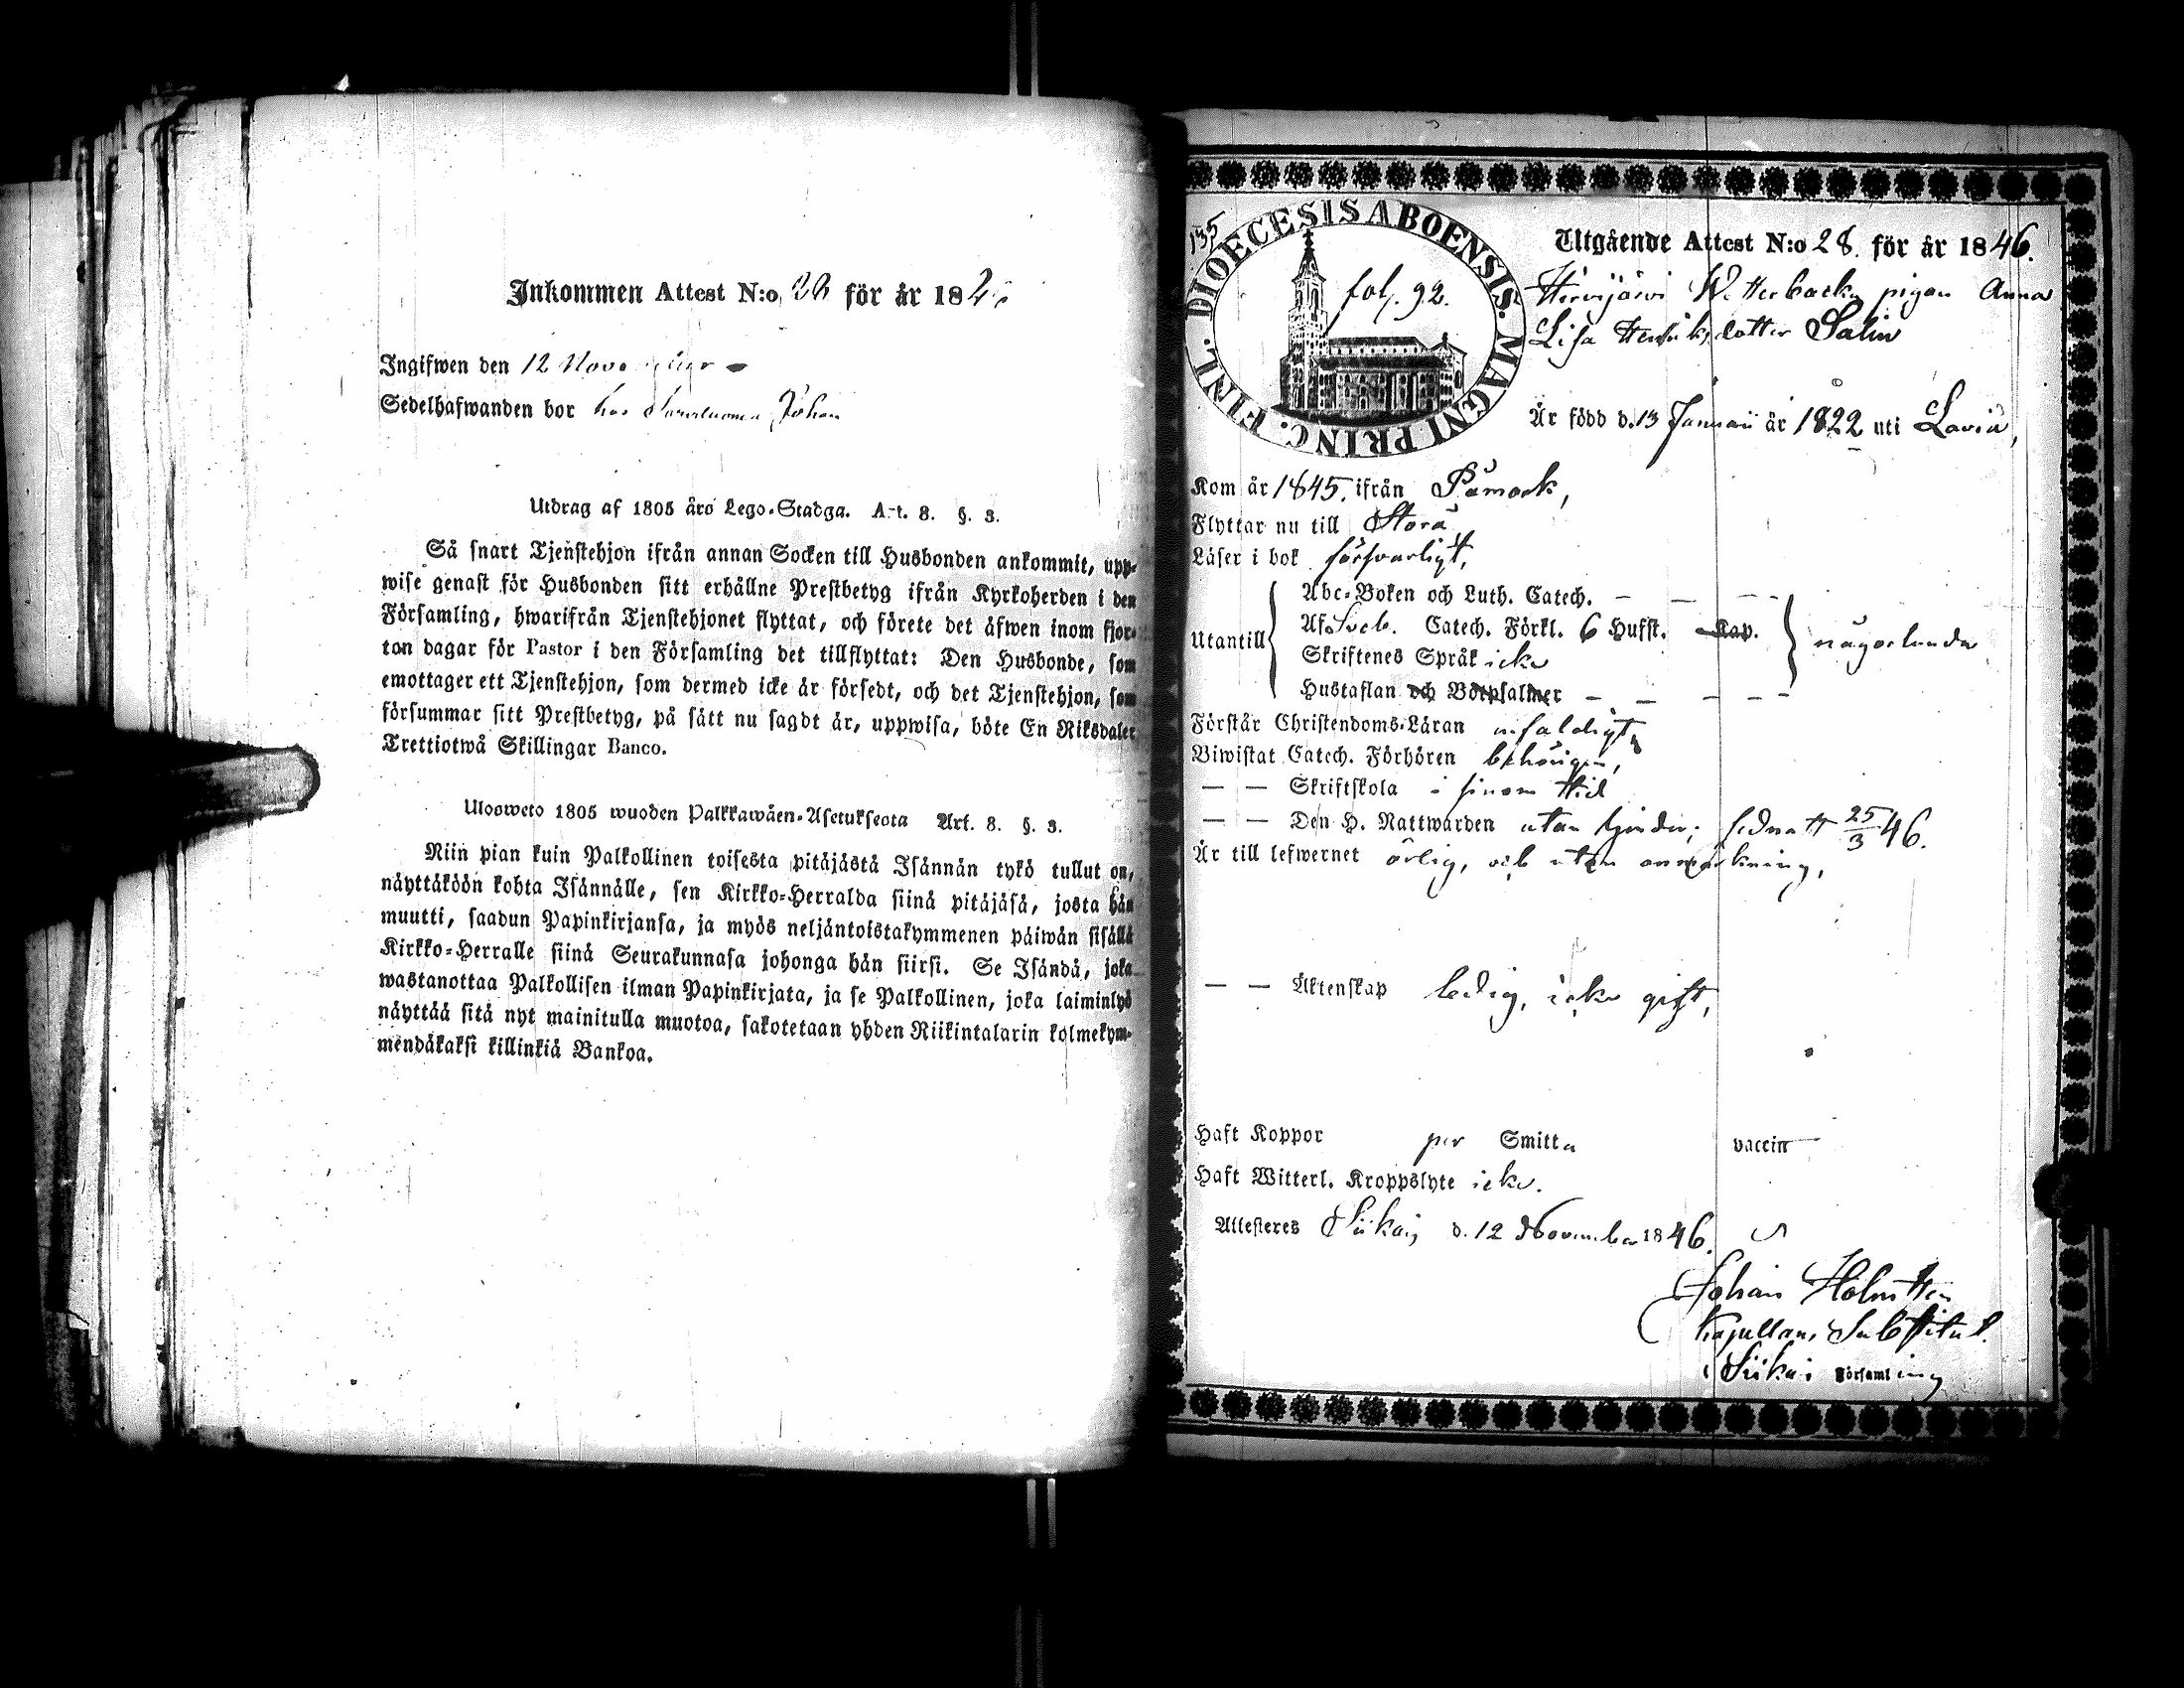 Inkommen Attest N:o för år 18
Ingifwen den 12 November
Sedelhafwanden bor hos Johan
Utdrag af 1805 års Lego-Stadga. Art. 8. §. 3.
Så snart Tjenstehjon ifrån annan Socken till Husbonden ankommit, upp-
wise genast för Husbonden sitt erhållne Prestbetyg ifrån Kyrkoherden i den
Församling, hwarifrån Tjenstehjonet flyttat, och förete det äfwen inom fjor-
ton dagar för Pastor i den Församling det tillflyttat: Den Husbonde, som
emottager ett Tjenstehjon, som dermed icke är försedt, och det Tjenstehjon, som
försummar sitt Prestbetyg, på sätt nu sagdt är, uppwisa, böte En Riksdaler
Trettiotwå Skillingar Banco.
Ulosweto 1805 wuoden Palkkawäen-Asetuksesta Art. 8. §. 3.
Niin pian kuin Palkollinen toisesta pitäjästä Isännän tykö tullut on,
näyttäköön kohta Isännälle, sen Kirkko-Herralda siinä pitäjäsä, josta hän
muutti, saadun Papinkirjansa, ja myös neljäntoistakymmenen päiwän sisällä
Kirkko-Herralle siinä Seurakunnasa johonga hän siirsi. Se Isändä, joka
wastanottaa Palkollisen ilman Papinkirjata, ja se Palkollinen, joka laiminlyö
näyttää sitä nyt mainitulla muotoa, sakotetaan yhden Riikintalarin kolmekym-
mendäkaksi killinkiä Bankoa.
135
FINL. DIOECESIS ABOENSIS. MAGNI PRINC.
fol. 92.
Utgående Attest N:o 28. för år 1846.
Hirvijärvi Wetterbacka pigan Anna
Lisa Henriksdotter Salin
Är född d. 13 Januarii år 1822 uti Lavia,
Kom år 1845. ifrån Påmark,
Flyttar nu till Storå
Läser i bok försvarligt,
Utantill
Abc-Boken och Luth. Catech. — — —
Af Sveb. Catech. Förkl. 6 Hufst. Kap.
Skriftenes Språk icke
Hustaflan och Botpsalmer — — — —
någorlunda
Förstår Christendoms-Läran enfaldigt,
Biwistat Catech. Förhören behörigen,
— — Skriftskola i sinom tid
— — Den H. Nattwarden utan hinder; sednast 25/3 46.
Är till lefwernet ärlig, och utan anmärkning,
— — Äktenskap ledig, icke gift,
Haft Koppor per Smitta vaccin
Haft Witterl. Kroppslyte icke.
Attesteres Siikais d. 12 November 1846.
Johan Holmsten
Kapellans Substitut.
i Siikais Församling